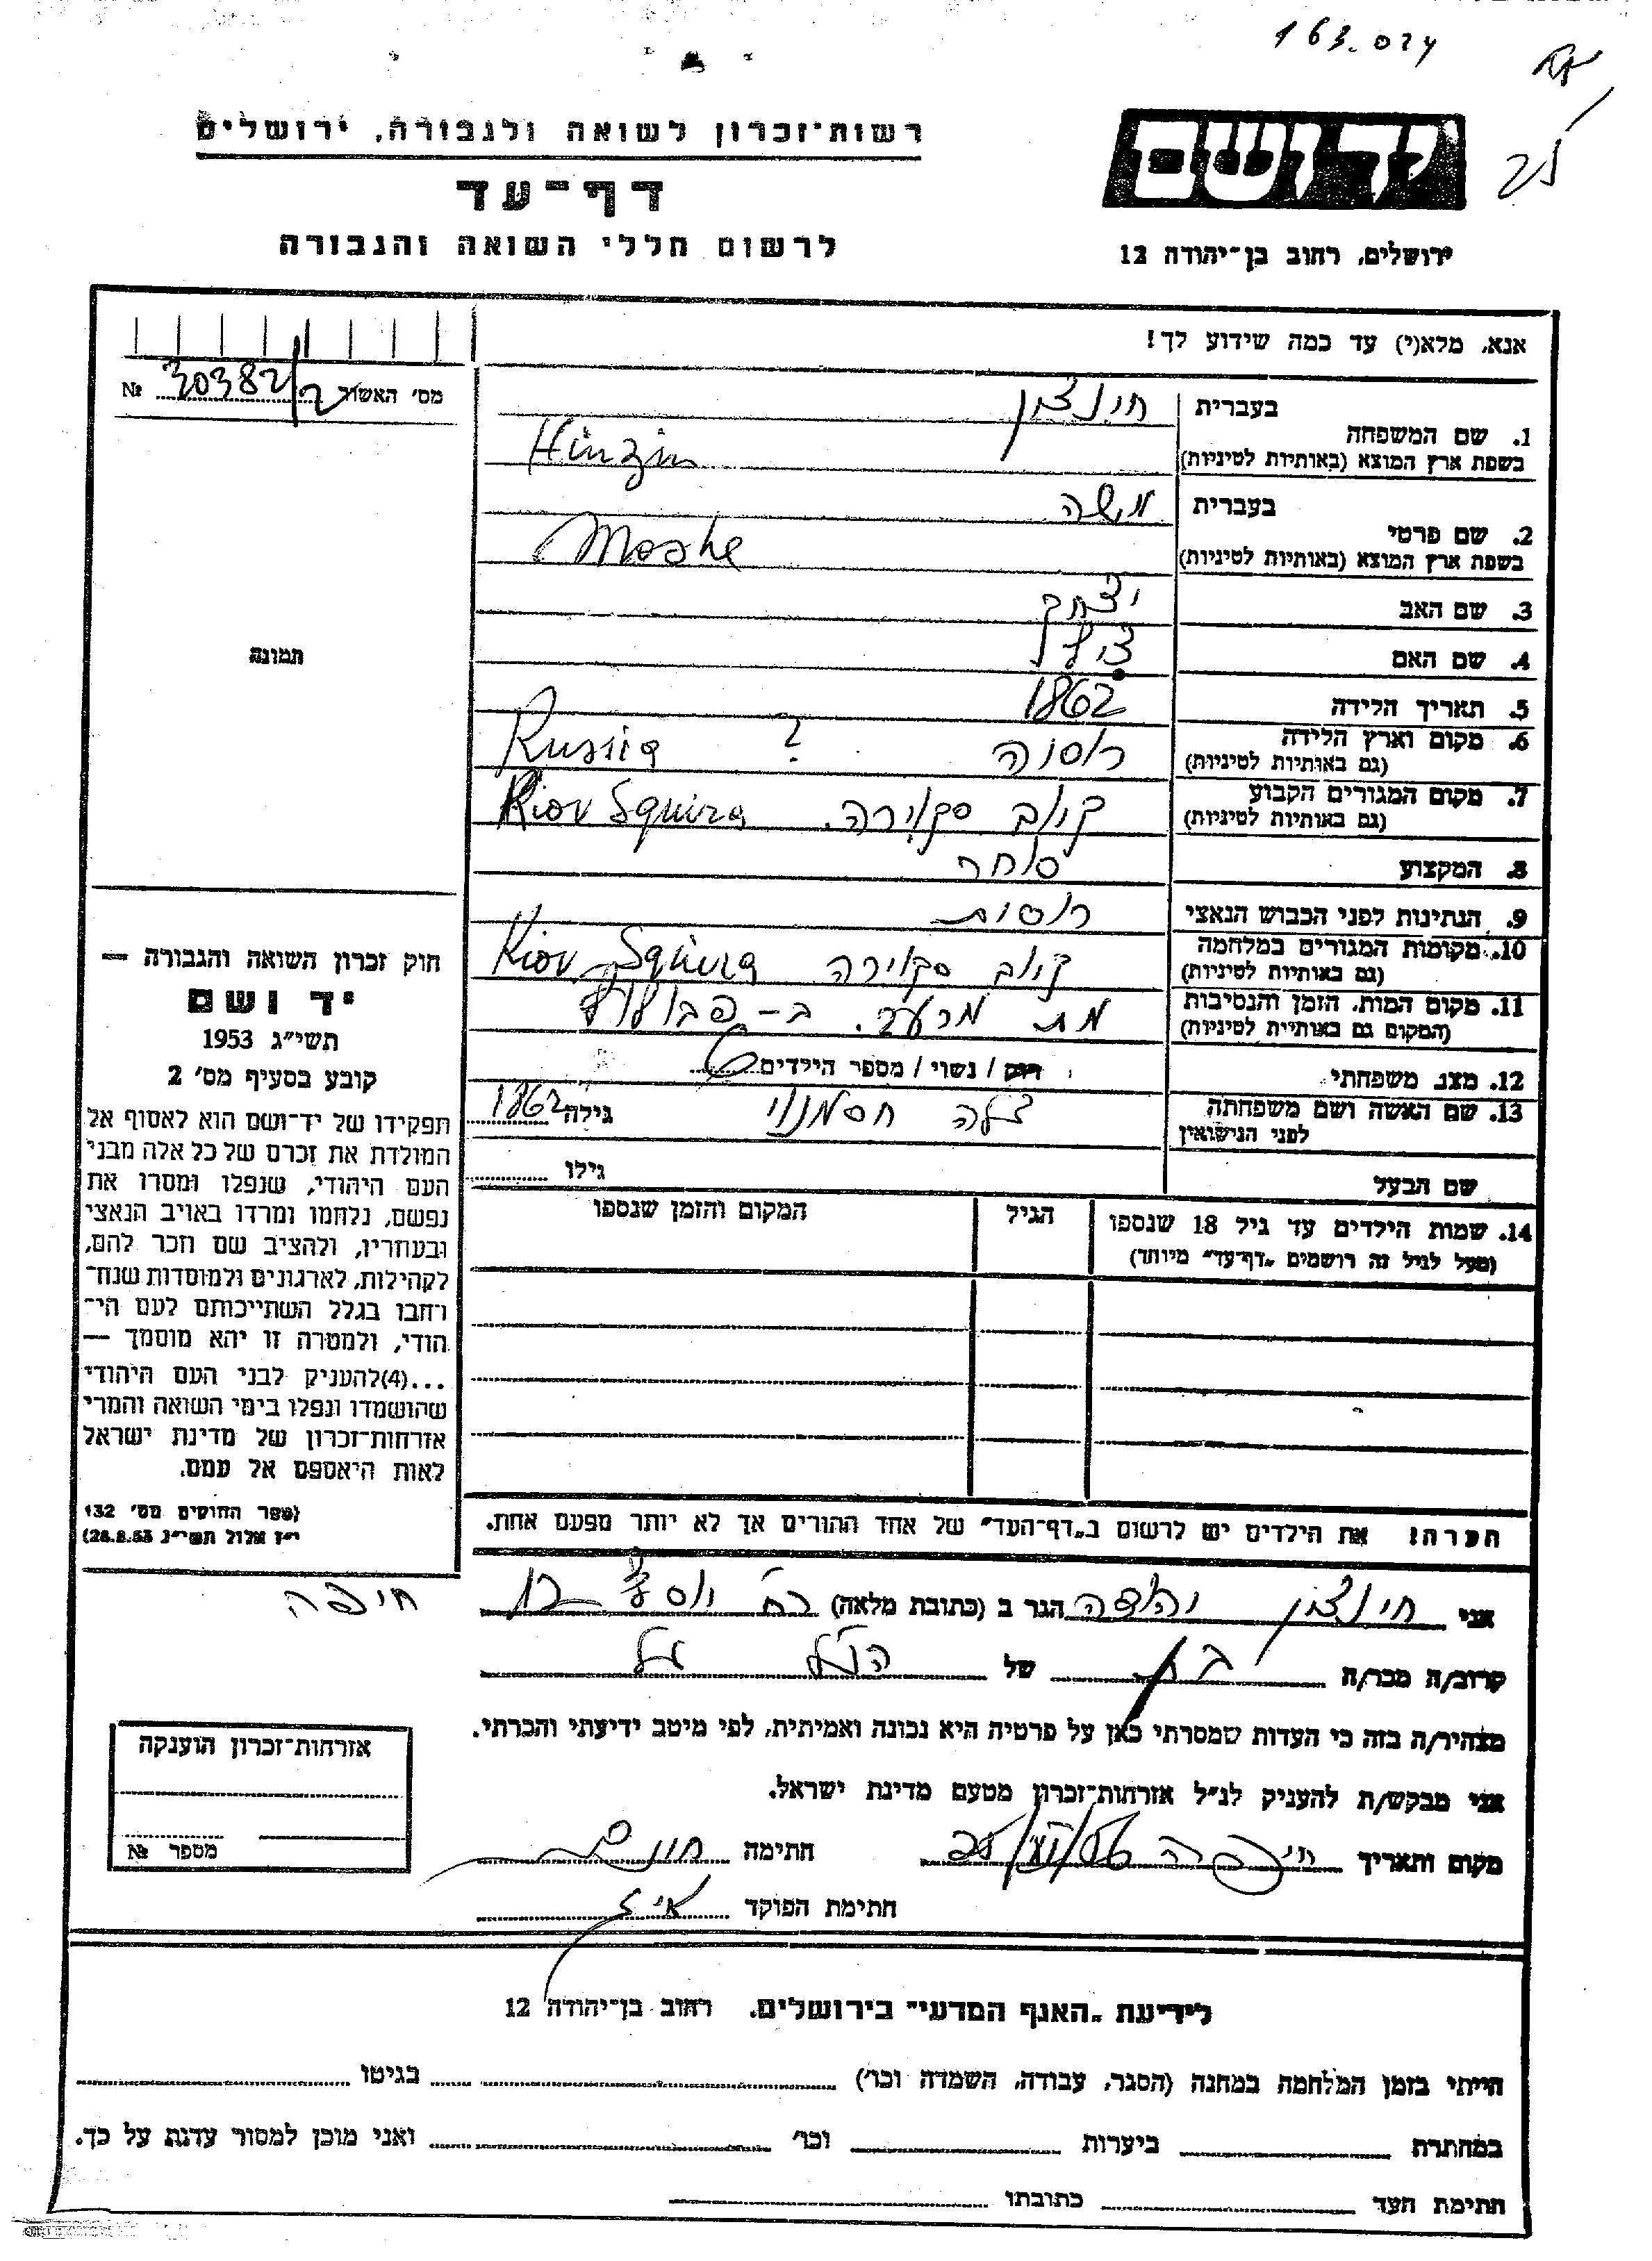 163.024
רשות־זכרון לשואה ולגבורה, ירושלים
דף־עד
לרשום חללי השואה והגבורה
יד ושם
ירושלים, רחוב בן־יהודה 12
אנא, מלא(י) עד כמה שידוע לך!
מס׳ האשור 30382/2 №
1. שם המשפחה
בעברית חינצין
בשפת ארץ המוצא (באותיות לטיניות) Hinzin
2. שם פרטי
בעברית משה
בשפת ארץ המוצא (באותיות לטיניות) Moshe
3. שם האב יצחק
4. שם האם
5. תאריך הלידה 1862
6. מקום וארץ הלידה
(גם באותיות לטיניות) רוסיה ? Russia
7. מקום המגורים הקבוע
(גם באותיות לטיניות) קיוב סקוירה. Kiov Squira
8. המקצוע סוחר
9. הנתינות לפני הכבוש הנאצי רוסית
10. מקומות המגורים במלחמה
(גם באותיות לטיניות) קיוב סקוירה Kiov Squira
11. מקום המות, הזמן והנסיבות
(המקום גם באותיות לטיניות) מת מרעב. ב-
12. מצב משפחתי רוק / נשוי / מספר הילדים 6
13. שם האשה ושם משפחתה
לפני הנישואין צילה חסמנוי גילה 1862
שם הבעל גילו
14. שמות הילדים עד גיל 18 שנספו
(מעל לגיל זה רושמים „דף־עד״ מיוחד)
הגיל
המקום והזמן שנספו
תמונה
חוק זכרון השואה והגבורה —
יד ושם
תשי״ג 1953
קובע בסעיף מס׳ 2
תפקידו של יד־ושם הוא לאסוף אל
המולדת את זכרם של כל אלה מבני
העם היהודי, שנפלו ומסרו את
נפשם, נלחמו ומרדו באויב הנאצי
ובעוזריו, ולהציב שם וזכר להם,
לקהילות, לארגונים ולמוסדות שנח־
רחבו בגלל השתייכותם לעם הי־
הודי, ולמטרה זו יהא מוסמך —
...(4) להעניק לבני העם היהודי
שהושמדו ונפלו בימי השואה והמרי
אזרחות־זכרון של מדינת ישראל
לאות היאספם אל עמם.
(ספר החוקים מס׳ 132
י״ז אלול תשי״ג 28.8.53)
הערה! את הילדים יש לרשום ב„דף־העד״ של אחד ההורים אך לא יותר מפעם אחת.
אני חינצין יהודה הגר ב (כתובת מלאה) רח׳ חיפה
קרוב/ה מכר/ה בן של הנ״ל
מצהיר/ה בזה כי העדות שמסרתי כאן על פרטיה היא נכונה ואמיתית, לפי מיטב ידיעתי והכרתי.
אני מבקש/ת להעניק לנ״ל אזרחות־זכרון מטעם מדינת ישראל.
מקום ותאריך חיפה חתימה
חתימת הפוקד
אזרחות־זכרון הוענקה
מספר №
לידיעת „האגף המדעי״ בירושלים. רחוב בן־יהודה 12
הייתי בזמן המלחמה במחנה (הסגר, עבודה, השמדה וכו׳) בגיטו
במחתרת ביערות וכו׳ ואני מוכן למסור עדות על כך.
חתימת העד כתובתו